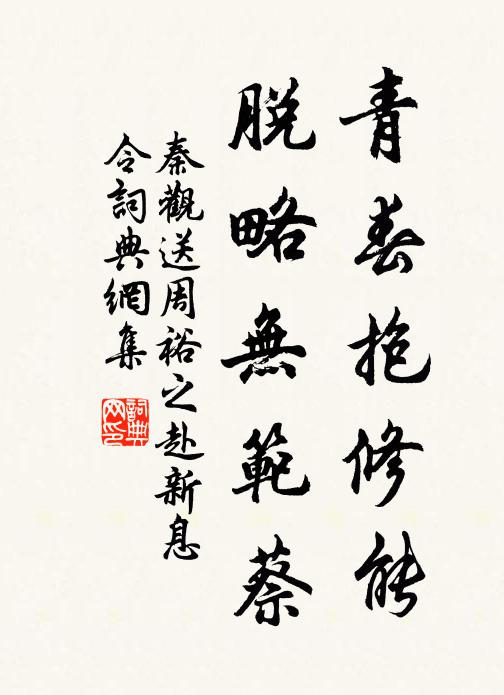 青春抱修能
脫略無範蔡
秦觀送周裕之赴新息
令詞典網集
詞典网印